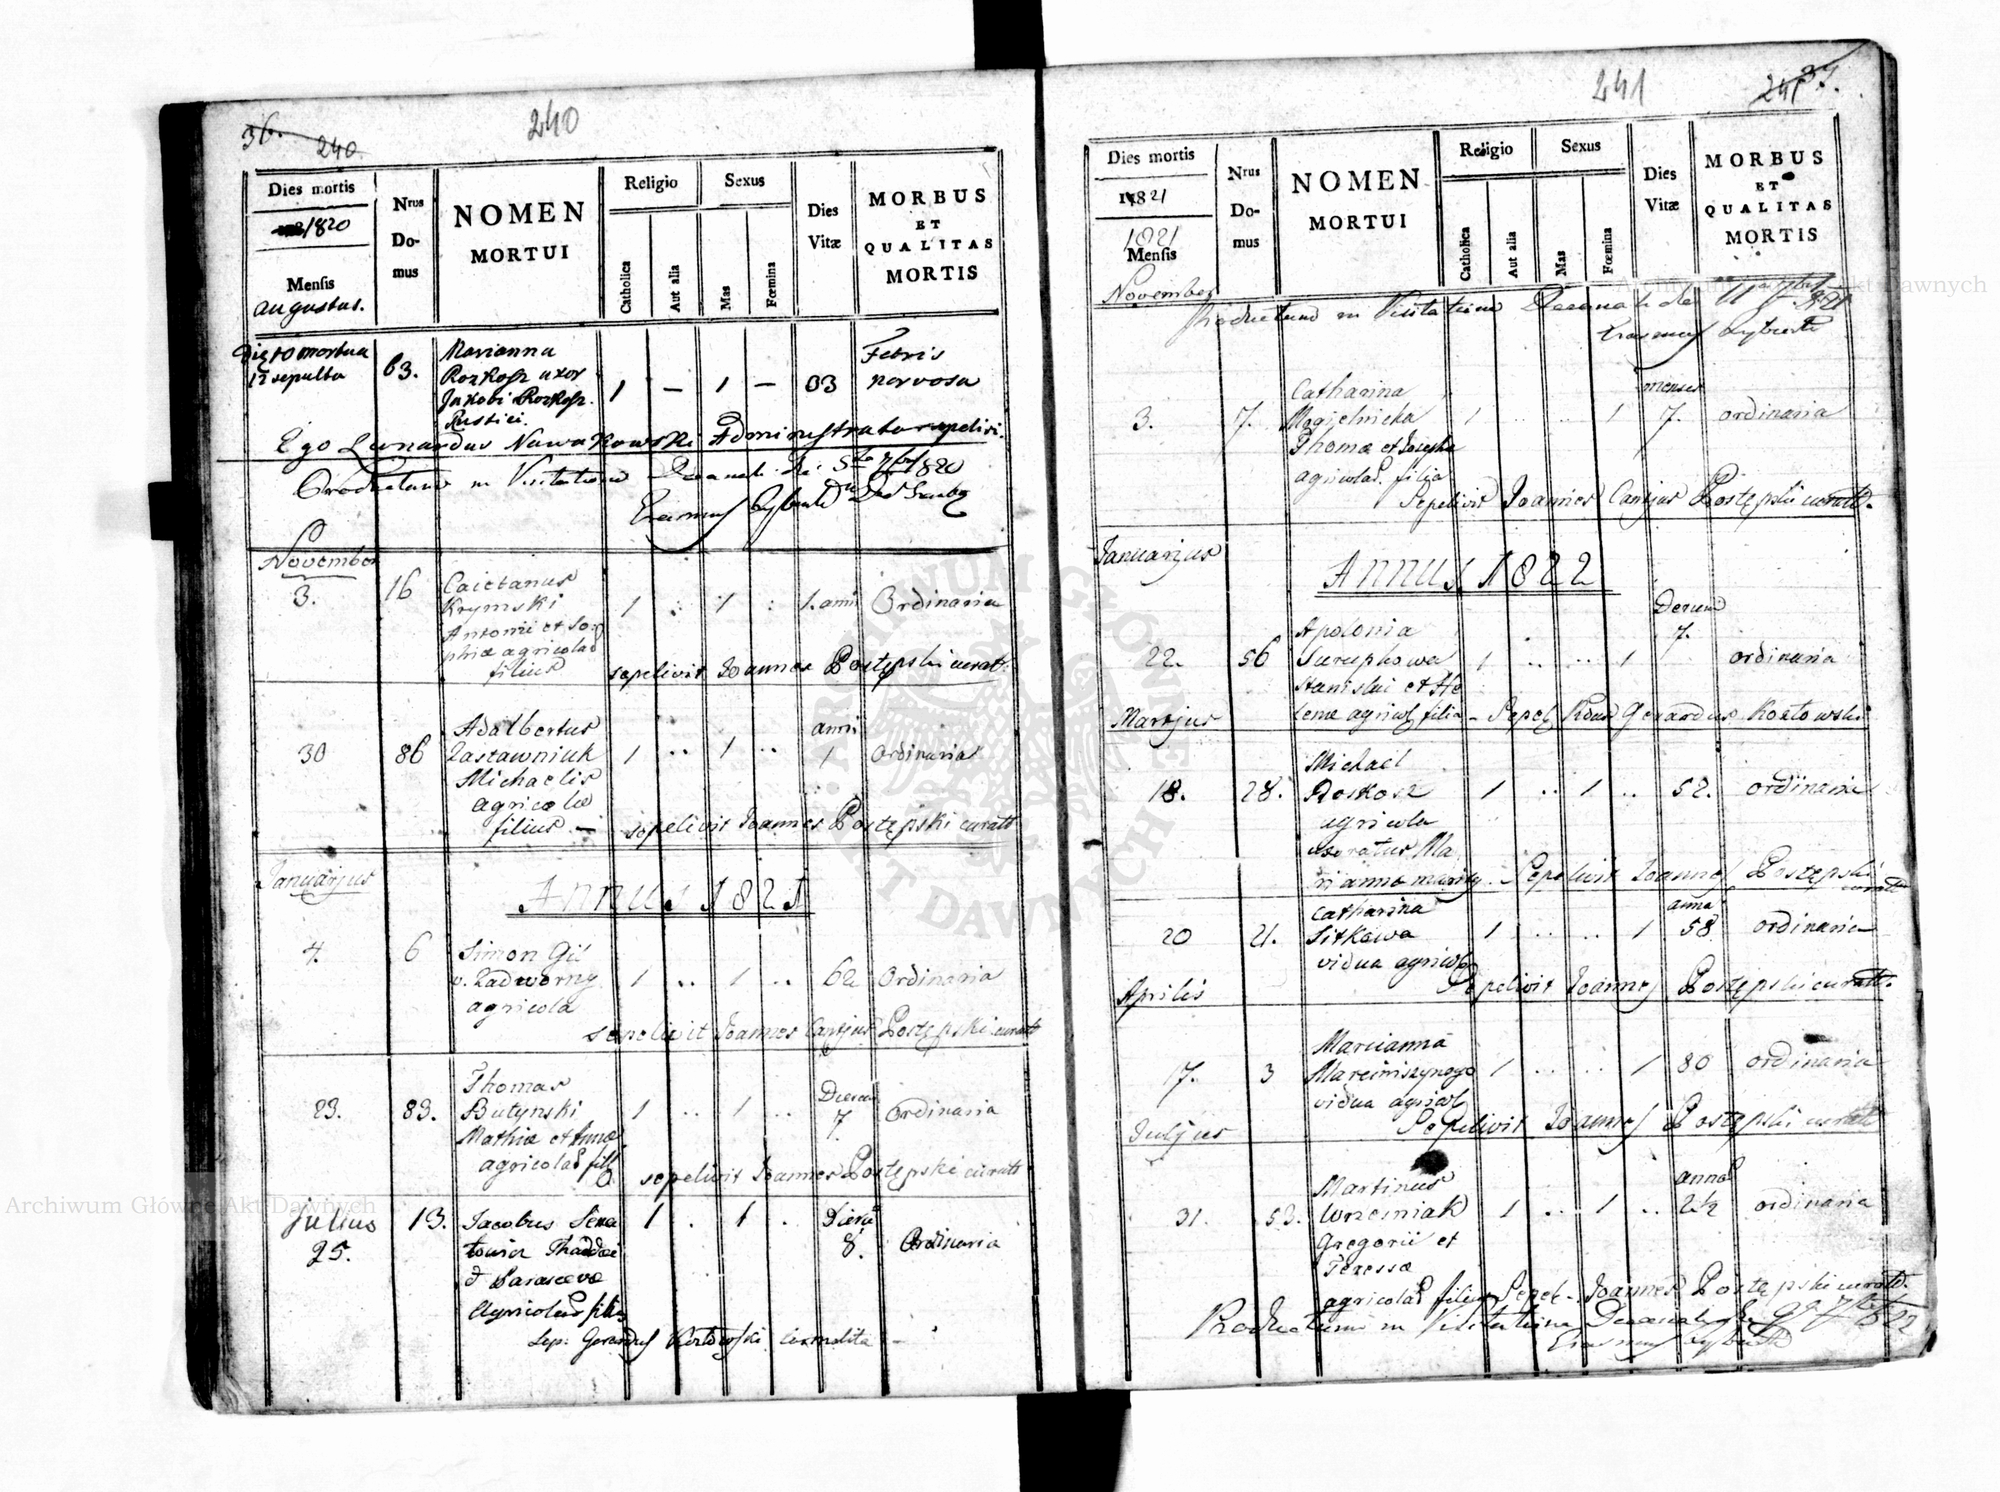 36.
240
240
Dies mortis
1820
Mensis
augustus.
Nrus
Do-
mus
NOMEN
MORTUI
Religio
Catholica
Aut alia
Sexus
Mas
Fœmina
Dies
Vitæ
MORBUS
ET
QUALITAS
MORTIS
Die 10 mortua
12 sepulta
63.
Marianna
Rozkosz uxor
Jakobi Rozkosz.
Rustici.
1 — 1 —
Febris
nervosa
Ego Lunardus Nowakowski Administrator sepelivi.
Productum in Visitatione Decanali die 1820
November
3.
16
Caietanus
Krymski
Antonii et So-
phiæ agricolar
filius
1 : 1 :
1. anni
Ordinaria
sepelivit Joannes Postępski curatt.
30
86
Adalbertus
Zastawniuk
Michaelis
agricolæ
filius —
1 .. 1 ..
anni
1
Ordinaria
sepelivit Joannes Postępski curatt
Januarjus
Annus 1821
4.
6
Simon Gil
v. Zadworny
agricola
1 .. 1 ..
62
Ordinaria
sepelivit Joannes Cantjus Postępski curatt
23.
83.
Thomas
Butynski
Mathiæ et Annæ
agricolar fil
1 .. 1 ..
Dierum
7.
Ordinaria
sepelivit Joannes Postępski curatt
Julius
25.
13.
Jacobus Sena
towicz Thaddæi
et Parascevæ
Agricolar filius
1 . 1 .
Dierum
8.
Ordinaria
Sep: Gerardus Kozłowski
241
241
37.
Dies mortis
1821
1821
Mensis
November
Nrus
Do-
mus
NOMEN
MORTUI
Religio
Catholica
Aut alia
Sexus
Mas
Fœmina
Dies
Vitæ
MORBUS
ET
QUALITAS
MORTIS
Productum in Visitatione Decanali die 1821
3.
7.
Catharina
Mogielnicka
Thomæ et Josepha
agricolar. filia
1 .. .. 1
menses
7.
ordinaria
Sepelivit Joannes Cantjus Postępski curatt.
Januarjus
Annus 1822
22.
56
Apolonia
Stanislai et He
lenæ agricol filia
1 .. .. 1
Dierum
7.
ordinaria
Sepel Gerardus Kozłowski
Martjus
18.
28.
Michael
Roskosz
agricola
uxoratus Ma
riannæ
1 .. 1 ..
52.
ordinaria
Sepelivit Joannes Postępski
curatt
20
21.
Catharina
Sitkowa
vidua agricol
1 .. .. 1
anno
58
ordinaria
Sepelivit Joannes Postępski curatt.
Aprilis
17.
3
Marianna
vidua agricol
1 .. .. 1
80
ordinaria
Sepelivit Joannes Postępski curatt
Juljus
31.
53.
Martinus
Wrzesniak
Gregorii et
Teressæ
agricolar filius
1 .. 1 ..
anno
2½
ordinaria
Sepel. Joannes Postępski curatt.
Productum in Visitatione Decanali
Archiwum Główne Akt Dawnych
Archiwum Główne Akt Dawnych
ARCHIWUM GŁÓWNE AKT DAWNYCH